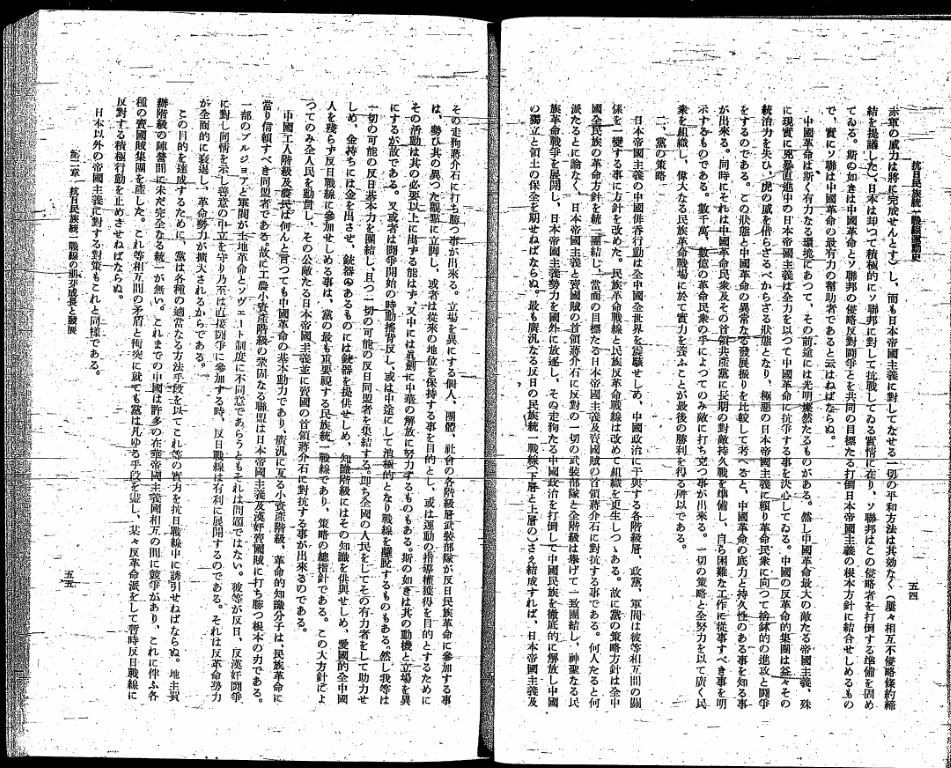 抗日民族統一戰線運動史
五四
赤軍の威力は將に完成せんとす)し、而も日本帝國主義に對してなせる一切の平和方法は其效なく(屢々相互不侵略條約締
結を提議した)、日本は却つて積極的にソ聯邦に對して挑戰してゐる實情に在り、ソ聯邦はこの侵略者を打倒する準備を固め
てゐる。斯の如きは中國革命とソ聯邦の侵略反對鬪爭とを共同の目標たる打倒日本帝國主義の根本方針に結合せしめるもの
で、實にソ聯は中國革命の最有力の幇助者であると云はねばならぬ。
中國革命は斯く有力たる環境にあつて、その前途には光明燦然たるものがある。然し中國革命最大の敵たる帝國主義、殊
に現實に冤暴直進中の日本帝國主義は全力を以つて中國革命に抗爭する事を決心してゐる。中國の反革命的集團は益々その
統治力を失ひ、虎の威を借らざるべからざる狀態となり、極惡の日本帝國主義に賴り革命民衆に向つて捨鉢的の進攻と鬪爭
をするのである。この狀態と中國革命の異常なる發展振りを比較して考へると、中國革命の底力と持久性のある事を知る事
が出來る。同時にそれは中國革命民衆及その首領共產黨に長期の對敵持久戰を準備し、自ら困難な工作に從事すべき事を明
示するものである。數千萬、數億の革命民衆の手によつてのみ敵に打ち克つ事が出來る。一切の策略と全努力を以て廣く民
衆を組織し、偉大なる民族革命戰場に於て實力を養ふことが最後の勝利を得る所以である。
二、黨の策略
日本帝國主義の中國併吞行動は全中國全世界を震駭せしめ、中國政治に干與する各階級層、政黨、軍閥は彼等相互間の關
係を一變する事に方針を改めた。民族革命戰線と民族反革命戰線は改めて組織を更生しつゝある。故に黨の策略方針は全中
國全民族の革命方針を統一團結し、當面の目標たる日本帝國主義及賣國賊の首領蔣介石に對抗する事である。何人たると何
派たるとに論なく、日本帝國主義と賣國賊の首領蔣介石に反對の一切の武裝部隊と全階級は擧げて一致團結し、神聖なる民
族革命戰爭を展開し、日本帝國主義勢力を國外に放逐し、その走狗たる中國政治を打倒して中國民族を徹底的に解放し中國
の獨立と領土の保全を期せねばならぬ。最も廣汎なる反日の民族統一戰線(下層と上層の)さへ結成すれば、日本帝國主義及
その走狗蔣介石に打ち勝つ事が出來る。立場を異にする個人、團體、社會の各階級層武裝部隊が反日民族革命に參加する事
は、勢ひ其の異つた觀點に立脚し、或者は從來の地位を保持する事を目的とし、或は運動の指導權獲得を目的とするために
その活動は其の必要以上に出ずる能はず、又中には眞劍に中華の解放に努力するものもある。斯の如きは其の動機と立場を異
にするが故である。又或者は鬪爭開始の時動搖背反し、或は中途にして消極的となり戰線を離脫するものもある。然し我等は
一切の可能の反日基本力を團結し、且つ一切の可能の反日同盟者を集結する。即ち全國の人民をしてその有力者をして助力せ
しめ、金持ちには金を出させ、銃器のあるものには銃器を提供せしめ、知識階級にはその知識を供與せしめ、愛國的全中國
人を殘らず反日戰線に參加せしめる事は、黨の最も重要視する民族統一戰線であり、策略の總指針である。この大方針によ
つてのみ全人民を動員し、その公敵たる日本帝國主義並に賣國の首領蔣介石に對抗する事が出來るのである。
中國工人階級及農民は何んと言つても中國革命の基本動力であり、廣汎に亙る小資產階級、革命的知識分子は民族革命に
當り信賴すべき同盟者である。故に工農小資產階級の鞏固なる聯盟は日本帝國主義及漢奸賣國賊に打ち勝つ根本の力である。
一部のブルジョアと軍閥が土地革命とソヴェート制度に不同意であらうともそれは問題ではない。彼等が反日、反漢奸鬪爭
に對し同情を示し善意の中立を守り乃至は直接鬪爭に參加する時、反日戰線は有利に展開するのである。それは反革命勢力
が全面的に衰退し、革命勢力が擴大されるからである。
この目的を達成するために、黨は各種の適當なる方法手段を以てこれ等の勢力を抗日戰線中に誘引せねばならぬ。地主買
辦階級の陣營間に未だ完全なる統一が無い。これまでの中國は許多の在華帝國主義國相互の間に競爭があり、これに伴ふ各
種の賣國賊集團を產した。これ等相互間の矛盾と衝突に就ても黨は凡ゆる手段を盡し、某々反革命派をして暫時反日戰線に
反對する積極行動を止めさせねばならぬ。
日本以外の帝國主義に對する對策もこれと同樣である。
第二章 抗日民族統一戰線の萌芽成長と發展
五五